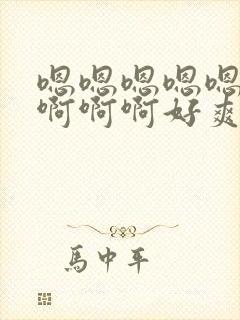 嗯嗯嗯嗯嗯
啊啊啊好爽
馬中平